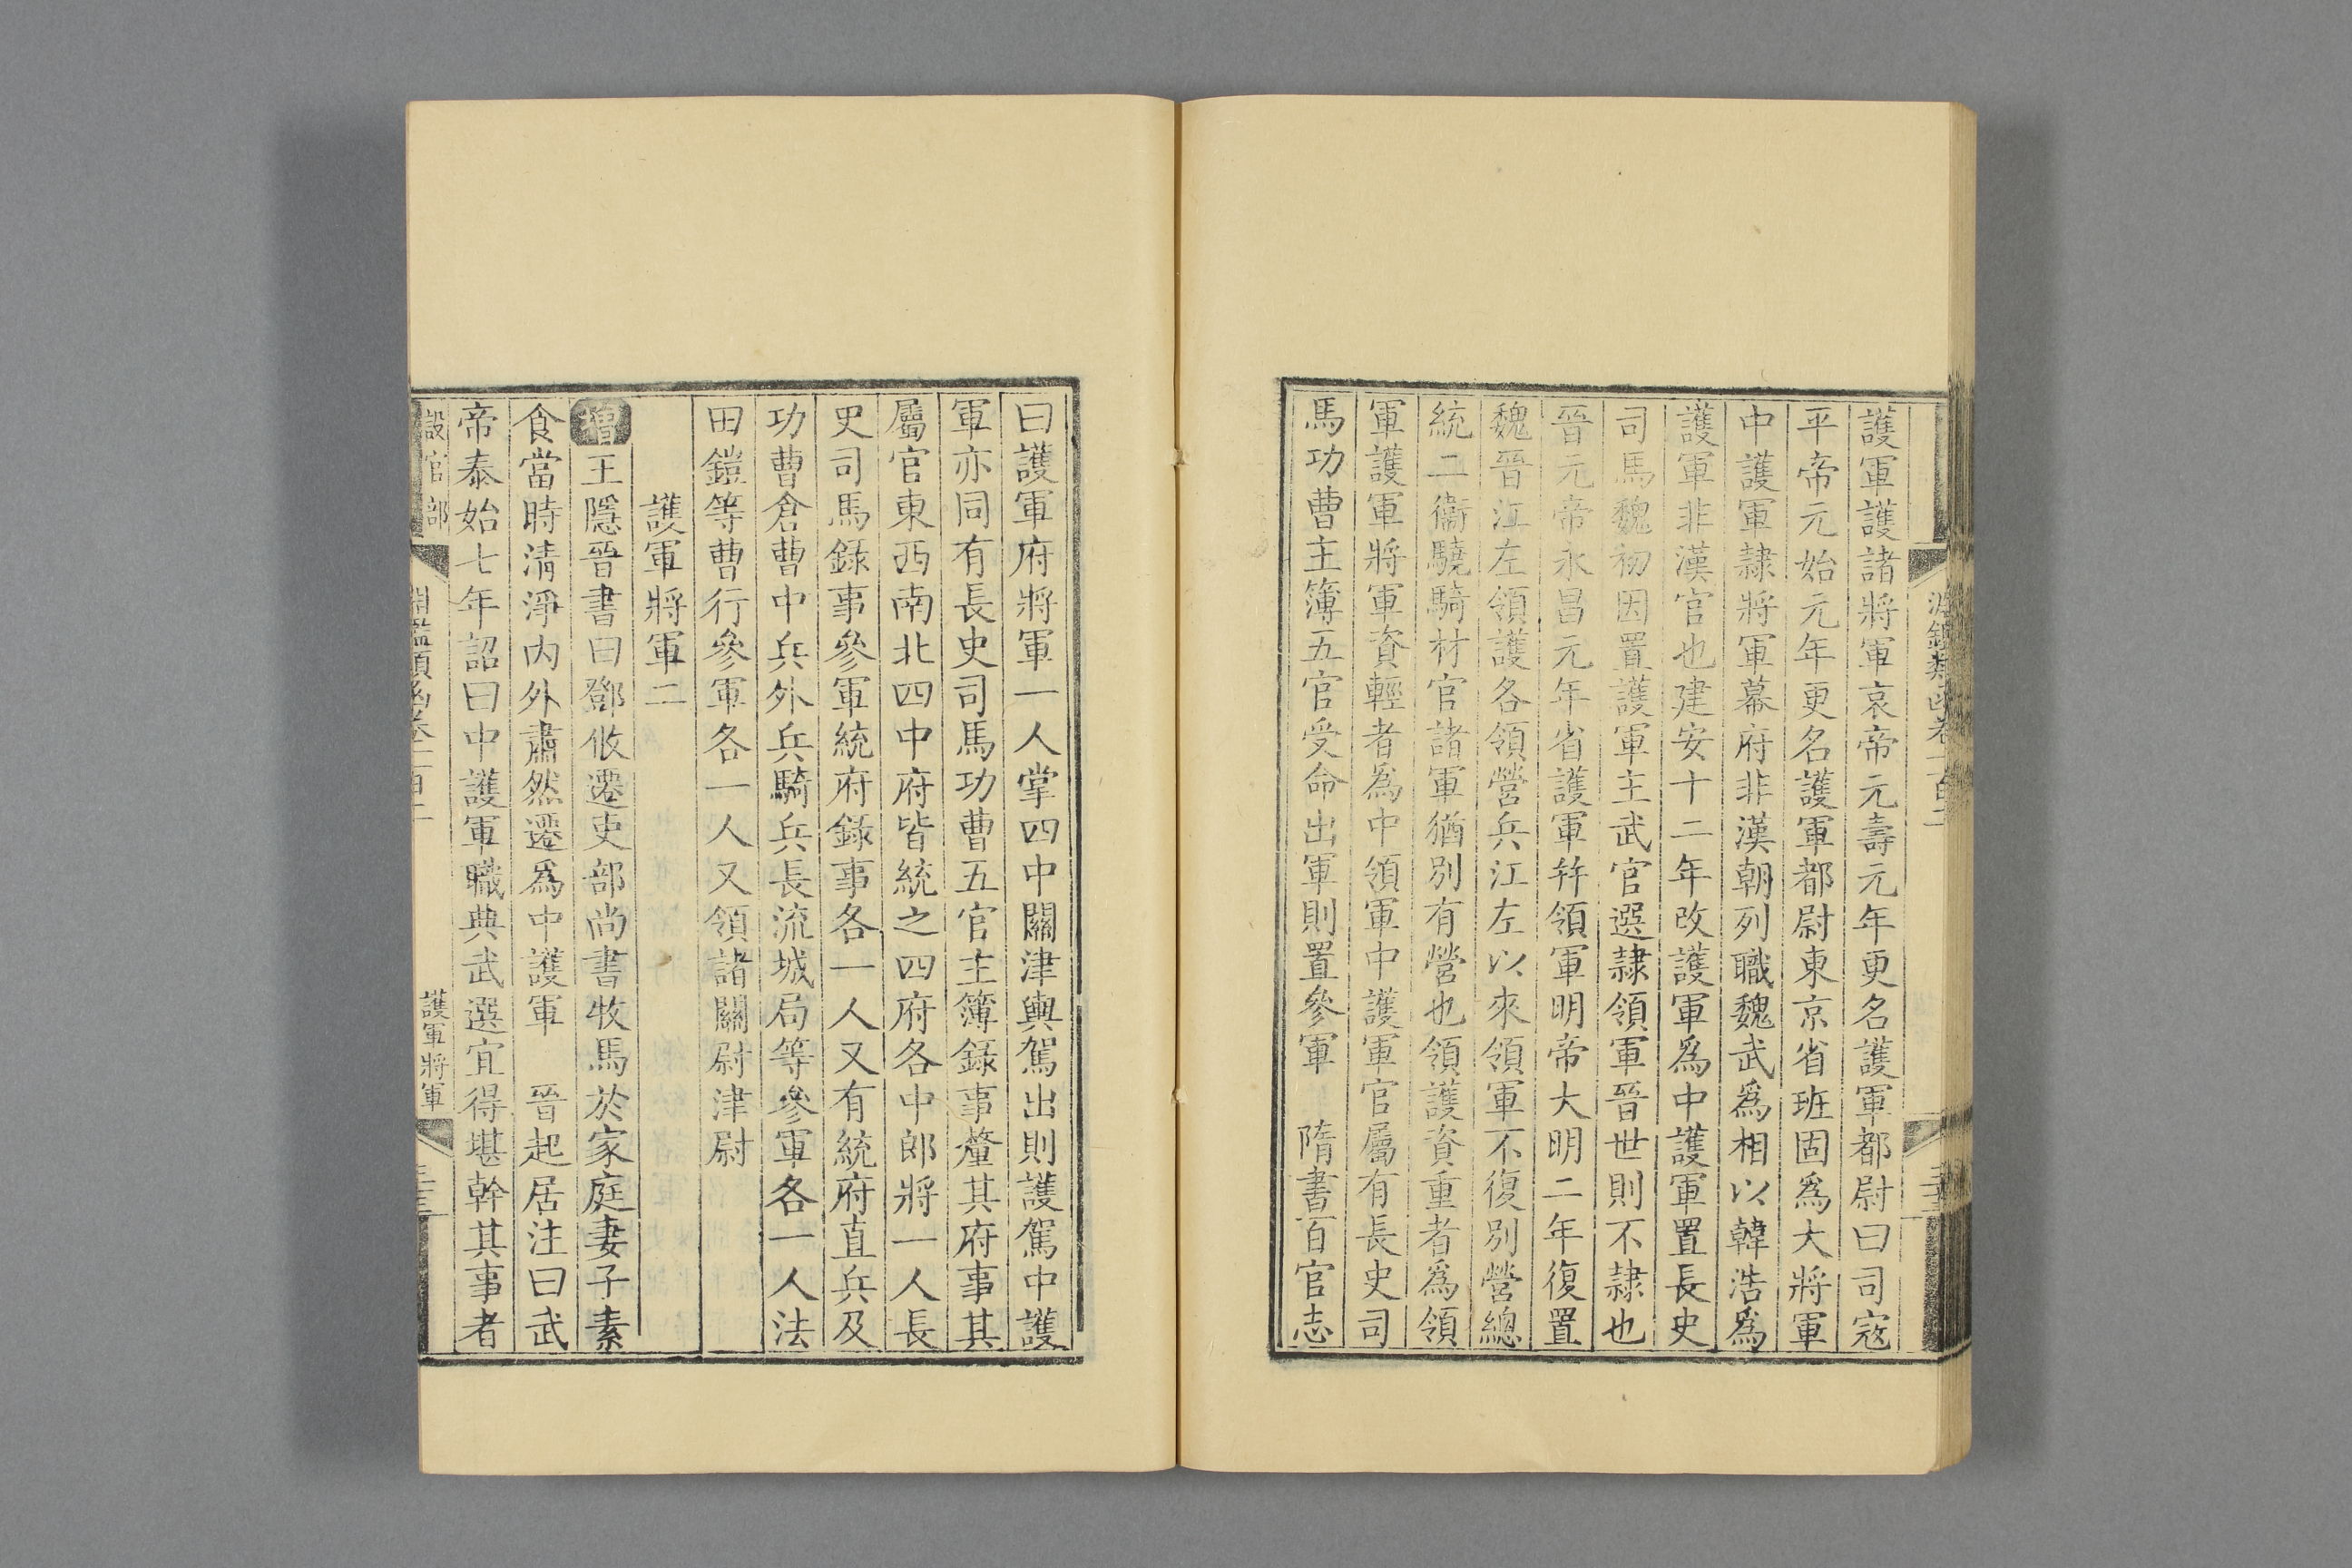 護軍護諸將軍哀帝元壽元年更名護軍都尉曰司寇
平帝元始元年更名護軍都尉東京省班固爲大將軍
中護軍隸將軍幕府非漢朝列職魏武爲相以韓浩爲
護軍非漢官也建安十二年改護軍爲中護軍置長史
司馬魏初因置護軍主武官選隸領軍晉世則不隸也
晉元帝永昌元年省護軍并領軍明帝大明二年復置
魏晉江左領護各領營兵江左以來領軍不復別營總
統二衞驍騎材官諸軍猶別有營也領護資重者爲領
軍護軍將軍資輕者爲中領軍中護軍官屬有長史司
馬功曹主簿五官受命出軍則置參軍　隋書百官志
曰護軍府將軍一人掌四中關津輿駕出則護駕中護
軍亦同有長史司馬功曹五官主簿錄事釐其府事其
屬官東西南北四中府皆統之四府各中郎將一人長
史司馬錄事參軍統府錄事各一人又有統府直兵及
功曹倉曹中兵外兵騎兵長流城局等參軍各一人法
田鎧等曹行參軍各一人又領諸關尉津尉
護軍將軍二
增王隱晉書曰鄧攸遷吏部尚書牧馬於家庭妻子素
食當時清淨內外肅然遷爲中護軍　晉起居注曰武
帝泰始七年詔曰中護軍職典武選宜得堪幹其事者
設官部
護軍將軍